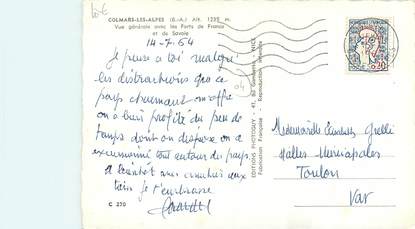 COLMARS-LES-ALPES (B.-A.) Alt. 1235 m.
Vue générale avec les Forts de France
et de Savoie
14-7-64
Je pense à toi malgré
les distractions que ce
pays charmant m'offre
on a bien profité du peu de
temps dont on dispose on a
excursionné tout autour du pays
A bientôt
t'embrasse
C 270
EDITIONS PHOTOGUY - 41,
Fabrication Française
Reproduction
0,20
04
Mademoiselle
Halles Municipales
Toulon
Var